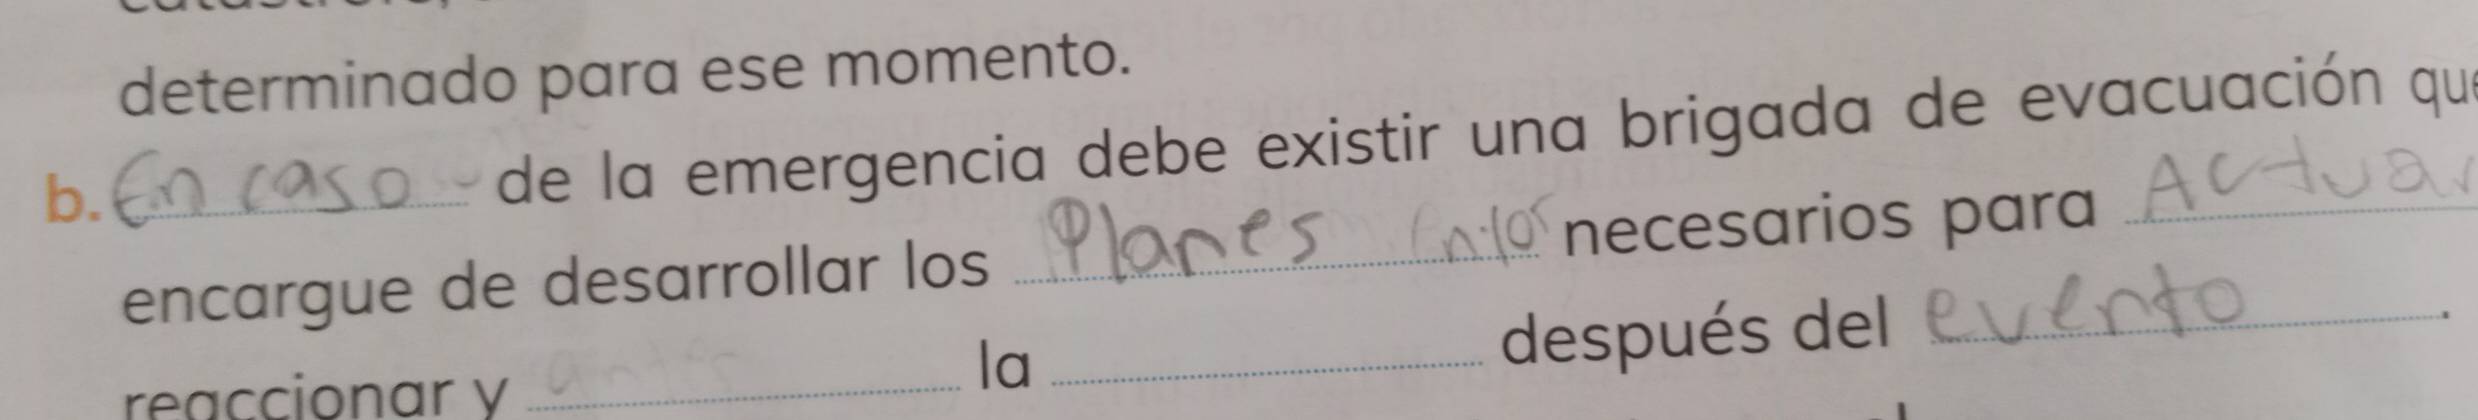 determinado para ese momento.
b. En caso de la emergencia debe existir una brigada de evacuación que
encargue de desarrollar los Planes necesarios para Actuar
reaccionar y antes la después del evento.